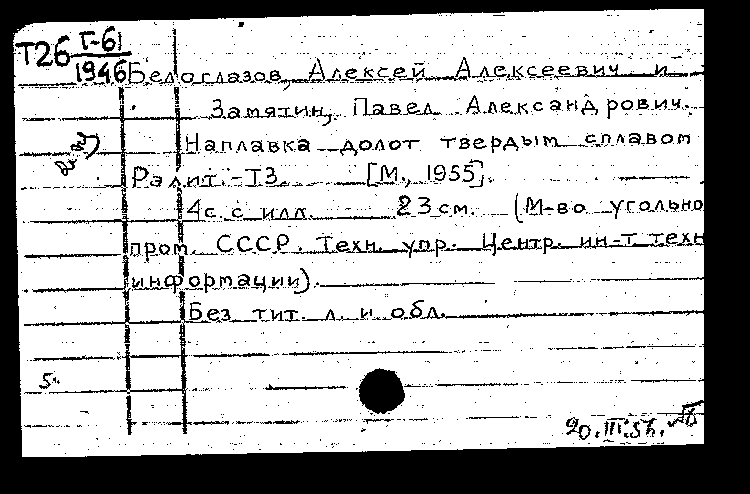 Т26 Г-61
1946 Белоглазов, Алексей Алексеевич и
Замятин, Павел Александрович.
Наплавка долот твердым сплавом
Рэлит.-ТЗ. [М., 1955].
4с. с илл. 23 см. (М-во угольно
пром. СССР. Техн. упр. Центр. ин-т техн
информации).
Без тит. л. и обл.
5.
20.III.56.